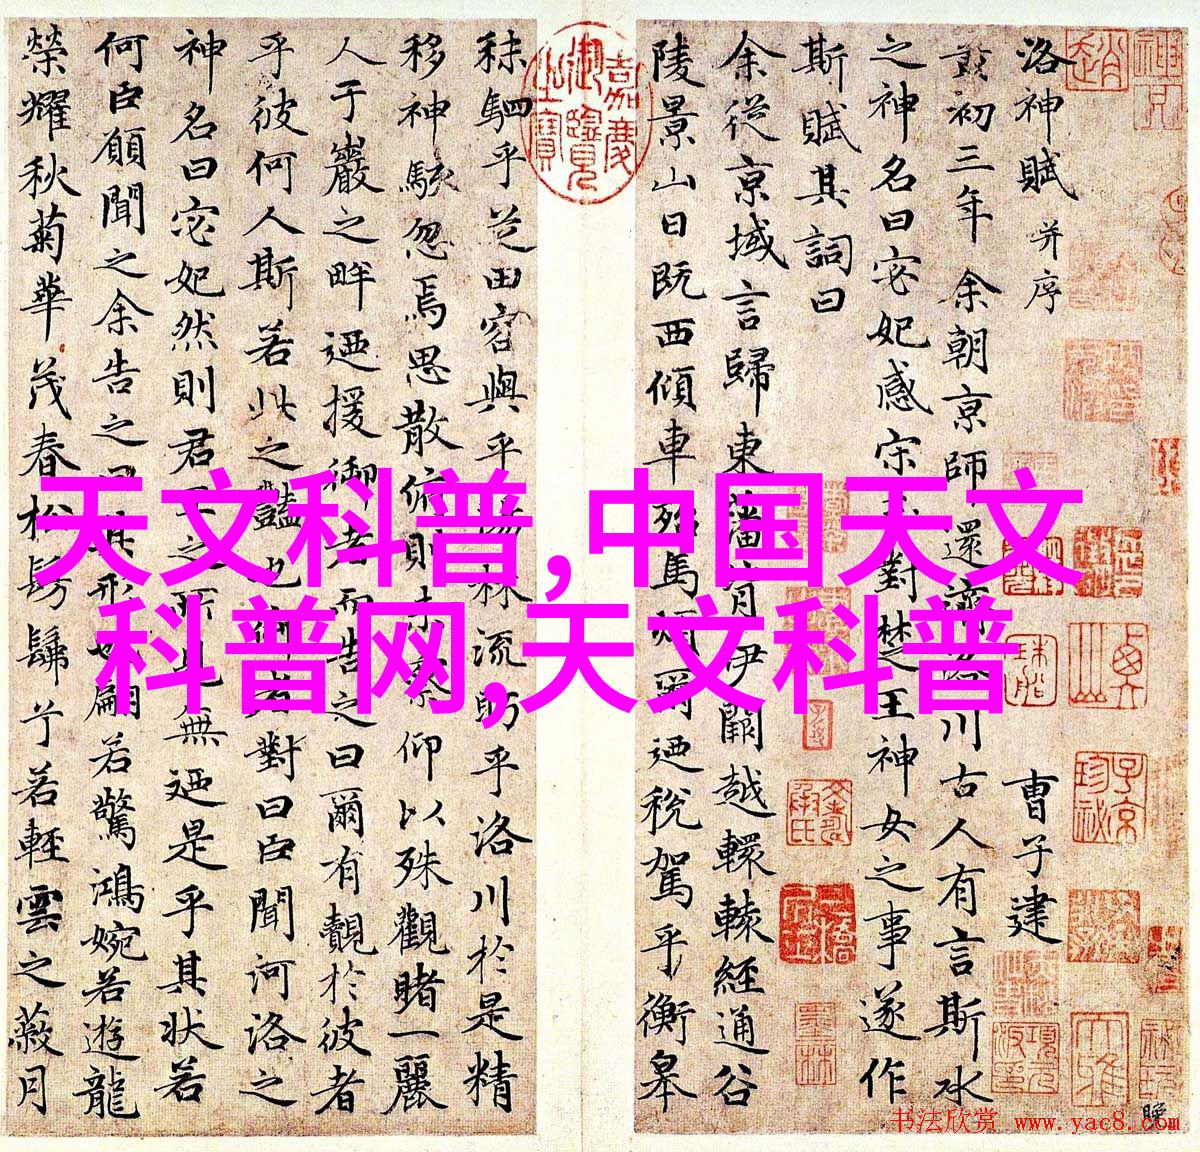 洛神賦 并序 曹子建
黃初三年余朝京師還濟洛川古人有言斯水
之神名曰宓妃感宋玉對楚王神女之事遂作
斯賦其詞曰
余從京域言歸東藩背伊闕越轘轅經通谷
陵景山日既西傾車殆馬煩爾迺稅駕乎衡皋
秣駟乎芝田容與乎陽林流眄乎洛川於是精
移神駭忽焉思散俯則未察仰以殊觀睹一麗
人于巖之畔迺援御者而告之曰爾有覿於彼者
乎彼何人斯若此之豔也御者對曰臣聞河洛之
神名曰宓妃然則君王之所見無迺是乎其狀若
何臣願聞之余告之曰其形也翩若驚鴻婉若遊龍
榮耀秋菊華茂春松髣髴兮若輕雲之蔽月
嘉慶御覽之寶
天文科普,中国天文
科普网,天文科普
书法欣赏 www.yac8.com